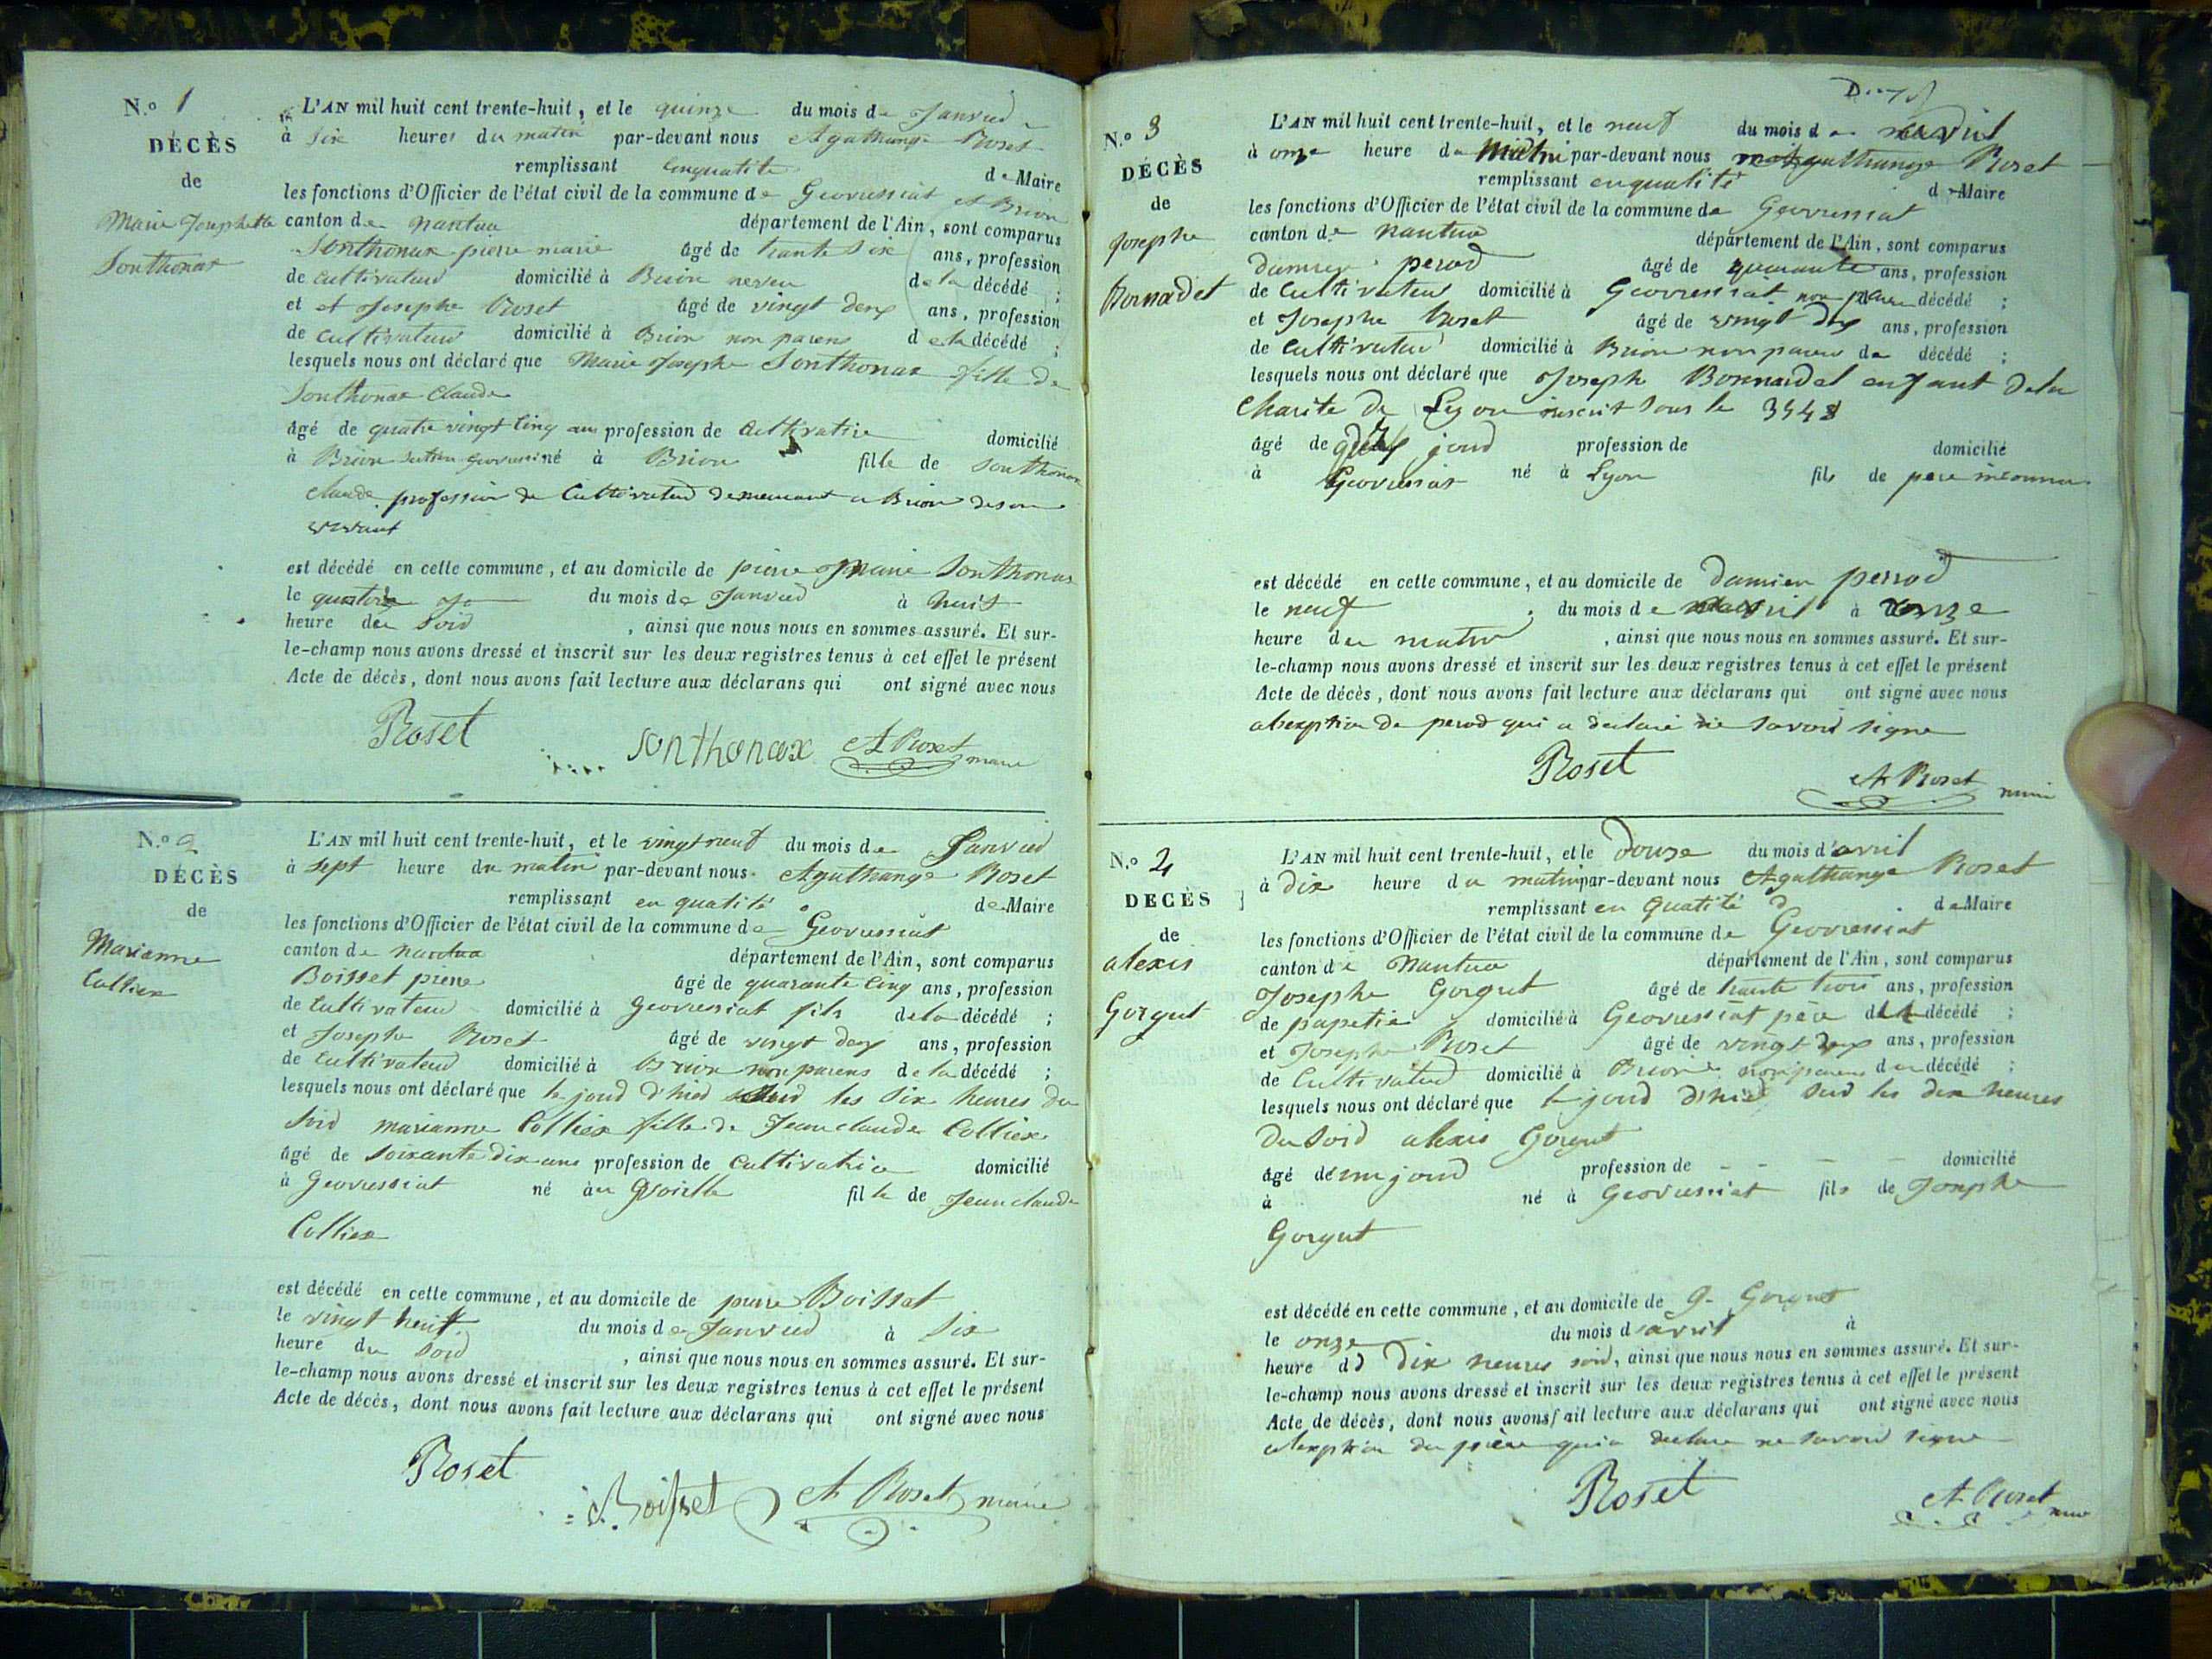 N.o 1
DÉCÈS
de
Marie Josephette
Sonthonax
L'AN mil huit cent trente-huit, et le quinze du mois de Janvied
à Six heures du matin par-devant nous Agathange Roset
remplissant enqualité de Maire
les fonctions d'Officier de l'état civil de la commune de Geovressiat et Brion
canton de nantua département de l'Ain, sont comparus
Sonthonax pierre marie âgé de trante Six ans, profession
de cultivateud domicilié à Brion neveu de la décédé ;
et et Josephe Roset âgé de vingt deux ans, profession
de cultivateud domicilié à Brion non parens de la décédé ;
lesquels nous ont déclaré que Marie Josephe Sonthonax fille de
Sonthonax Claude
âgé de quatre vingt Cinq ans profession de Cultivatrice domicilié
à Brion né à Brion fille de Sonthonax
Claude profession de Cultivateud demeurant a Brion deson
vivant
est décédé en cette commune, et au domicile de pierre Marie Sonthonax
le quatorze du mois de Janvied à huit
heure du Soid , ainsi que nous nous en sommes assuré. Et sur-
le-champ nous avons dressé et inscrit sur les deux registres tenus à cet effet le présent
Acte de décès, dont nous avons fait lecture aux déclarans qui ont signé avec nous
Roset Sonthonax At Roset maire
N.o 2
DÉCÈS
de
Marianne
Colliex
L'AN mil huit cent trente-huit, et le vingt neuf du mois de Janvied
à sept heure du matin par-devant nous Agathange Roset
remplissant en qualité de Maire
les fonctions d'Officier de l'état civil de la commune de Geovressiat
canton de nantua département de l'Ain, sont comparus
Boisset pierre âgé de quarante Cinq ans, profession
de Cultivateud domicilié à Geovressiat fils de la décédé ;
et Josephe Roset âgé de vingt deux ans, profession
de Cultivateud domicilié à Brion non parens de la décédé ;
lesquels nous ont déclaré que le joud d'hied sud les Six heures du
Soid marianne Colliex fille de Jean claude Colliex
âgé de Soixante dix ans profession de Cultivatrice domicilié
à Geovressiat né au fille de Jean claude
Colliex
est décédé en cette commune, et au domicile de pierre Boisset
le vingt huit du mois de Janvied à Six
heure du soid , ainsi que nous nous en sommes assuré. Et sur-
le-champ nous avons dressé et inscrit sur les deux registres tenus à cet effet le présent
Acte de décès, dont nous avons fait lecture aux déclarans qui ont signé avec nous
Roset Boisset At Roset maire
N.o 3
DÉCÈS
de
Josephe
Bonnadet
L'AN mil huit cent trente-huit, et le neuf du mois d avril
à onze heure du Matin par-devant nous Agathange Roset
remplissant enqualité de Maire
les fonctions d'Officier de l'état civil de la commune de Geovressiat
canton de nantua département de l'Ain, sont comparus
Damien perod âgé de quarante ans, profession
de Cultivateud domicilié à Geovressiat non décédé ;
et Josephe Roset âgé de vingt deux ans, profession
de Cultivateud domicilié à Brion non parens de décédé ;
lesquels nous ont déclaré que Joseph Bonnardel enfant dela
Charite de Lyon inscrit sous le 3448
âgé de joud profession de domicilié
à Geovressiat né à Lyon fils de pere inconnu
est décédé en cette commune, et au domicile de Damien perrod
le neuf du mois de avril à onze
heure du matin , ainsi que nous nous en sommes assuré. Et sur-
le-champ nous avons dressé et inscrit sur les deux registres tenus à cet effet le présent
Acte de décès, dont nous avons fait lecture aux déclarans qui ont signé avec nous
alexeption de perod qui a declaré ne savoid signe
Roset At Roset maire
N.o 4
DECÈS
de
alexis
Gorgut
L'AN mil huit cent trente-huit, et le Douze du mois d'avril
à dix heure du matin par-devant nous Agathange Roset
remplissant en Qualité de Maire
les fonctions d'Officier de l'état civil de la commune de Geovressiat
canton de Nantua département de l'Ain, sont comparus
Josephe Gorgut âgé de trante trois ans, profession
de papetié domicilié à Geovressiat père du décédé ;
et Josephe Roset âgé de vingt deux ans, profession
de Cultivateud domicilié à Brion non parens du décédé ;
lesquels nous ont déclaré que le joud d'hied sud les dix heures
Du Soid alexis Gorgut
âgé de un joud profession de domicilié
à né à Geovressiat fils de Josephe
Gorgut
est décédé en cette commune, et au domicile de g. Gorgut
le onze du mois d'avril à
heure dd Dix heures soid, ainsi que nous nous en sommes assuré. Et sur-
le-champ nous avons dressé et inscrit sur les deux registres tenus à cet effet le présent
Acte de décès, dont nous avons fait lecture aux déclarans qui ont signé avec nous
alexeption du père qui a declare ne savoid signe
Roset At Roset maire